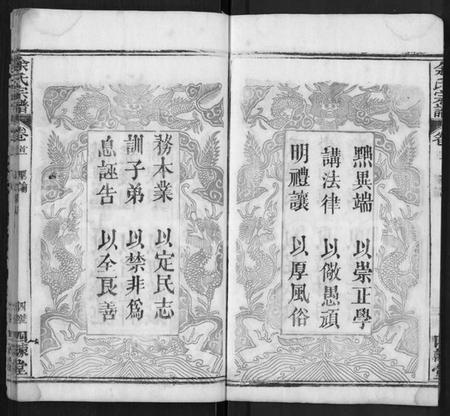 余氏宗譜
黜異端 以崇正學
講法律 以儆愚頑
明禮讓 以厚風俗
務本業 以定民志
訓子弟 以禁非為
息誣告 以全良善
余氏宗譜
卷首